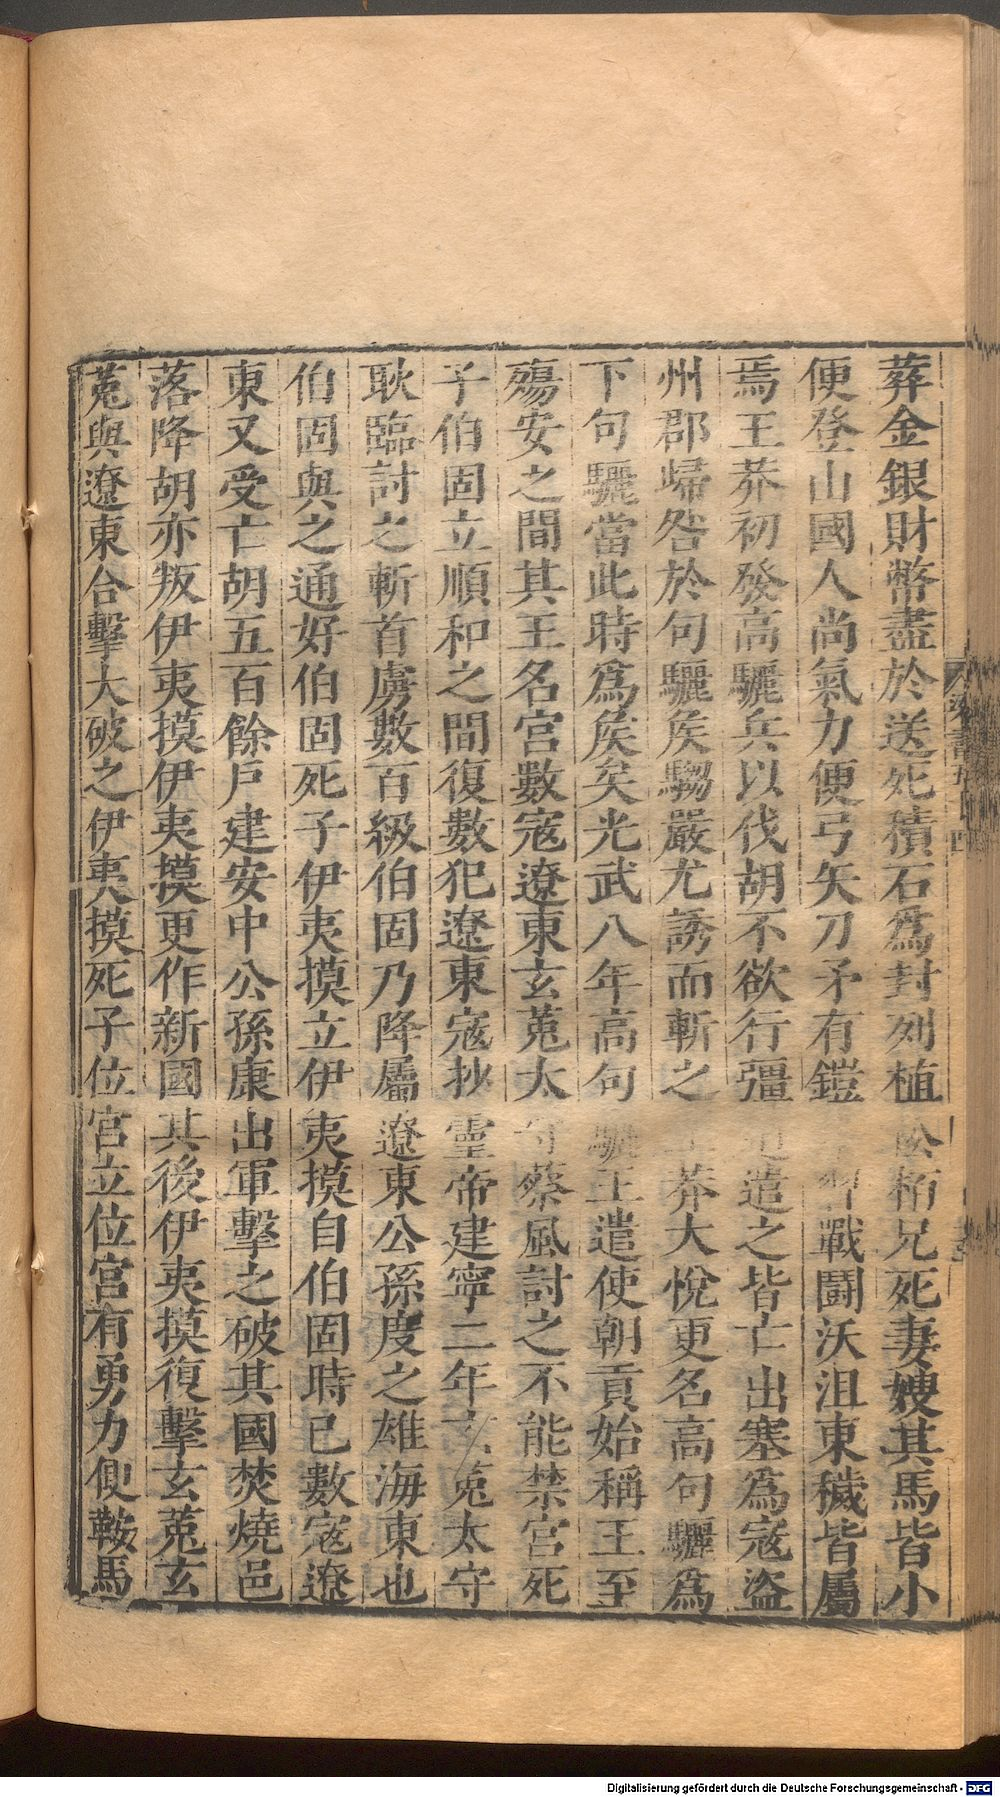 葬金銀財幣盡於送死積石爲封列植松栢兄死妻嫂其馬皆小
便登山國人尚氣力便弓矢刀矛有鎧習戰鬪沃沮東穢皆屬
焉王莽初發高驪兵以伐胡不欲行彊迫遣之皆亡出塞爲寇盜
州郡歸咎於句驪矦騶嚴尤誘而斬之王莽大悅更名高句驪爲
下句驪當此時爲矦矣光武八年高句驪王遣使朝貢始稱王至
殤安之間其王名宮數寇遼東玄菟太守蔡風討之不能禁宮死
子伯固立順和之間復數犯遼東寇抄靈帝建寧二年玄菟太守
耿臨討之斬首虜數百級伯固乃降屬遼東公孫度之雄海東也
伯固與之通好伯固死子伊夷摸立伊夷摸自伯固時已數寇遼
東又受亡胡五百餘戸建安中公孫康出軍擊之破其國焚燒邑
落降胡亦叛伊夷摸伊夷摸更作新國其後伊夷摸復擊玄菟玄
菟與遼東合擊大破之伊夷摸死子位宮立位宮有勇力便鞍馬
Digitalisierung gefördert durch die Deutsche Forschungsgemeinschaft - DFG